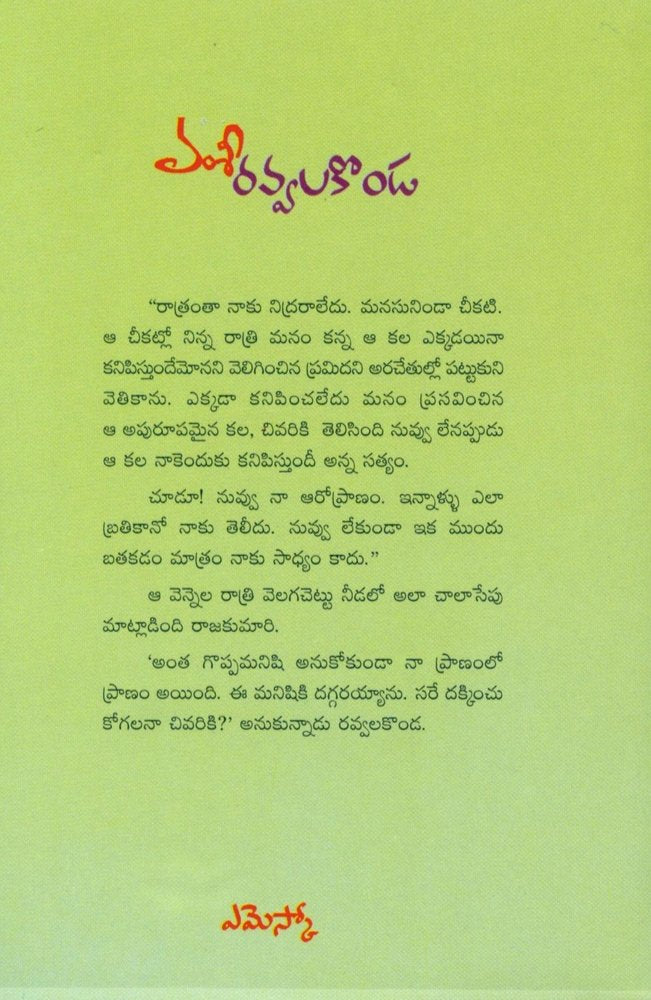 వంశీ
రవ్వలకొండ
“రాత్రంతా నాకు నిద్రరాలేదు. మనసునిండా చీకటి.
ఆ చీకట్లో నిన్న రాత్రి మనం కన్న ఆ కల ఎక్కడయినా
కనిపిస్తుందేమోనని వెలిగించిన ప్రమిదని అరచేతుల్లో పట్టుకుని
వెతికాను. ఎక్కడా కనిపించలేదు మనం ప్రసవించిన
ఆ అపురూపమైన కల, చివరికి తెలిసింది నువ్వు లేనప్పుడు
ఆ కల నాకెందుకు కనిపిస్తుందీ అన్న సత్యం.
చూడూ! నువ్వు నా ఆరోప్రాణం. ఇన్నాళ్ళు ఎలా
బ్రతికానో నాకు తెలీదు. నువ్వు లేకుండా ఇక ముందు
బతకడం మాత్రం నాకు సాధ్యం కాదు.”
ఆ వెన్నెల రాత్రి వెలగచెట్టు నీడలో అలా చాలాసేపు
మాట్లాడింది రాజకుమారి.
‘అంత గొప్పమనిషి అనుకోకుండా నా ప్రాణంలో
ప్రాణం అయింది. ఈ మనిషికి దగ్గరయ్యాను. సరే దక్కించు
కోగలనా చివరికి?’ అనుకున్నాడు రవ్వలకొండ.
ఎమెస్కో